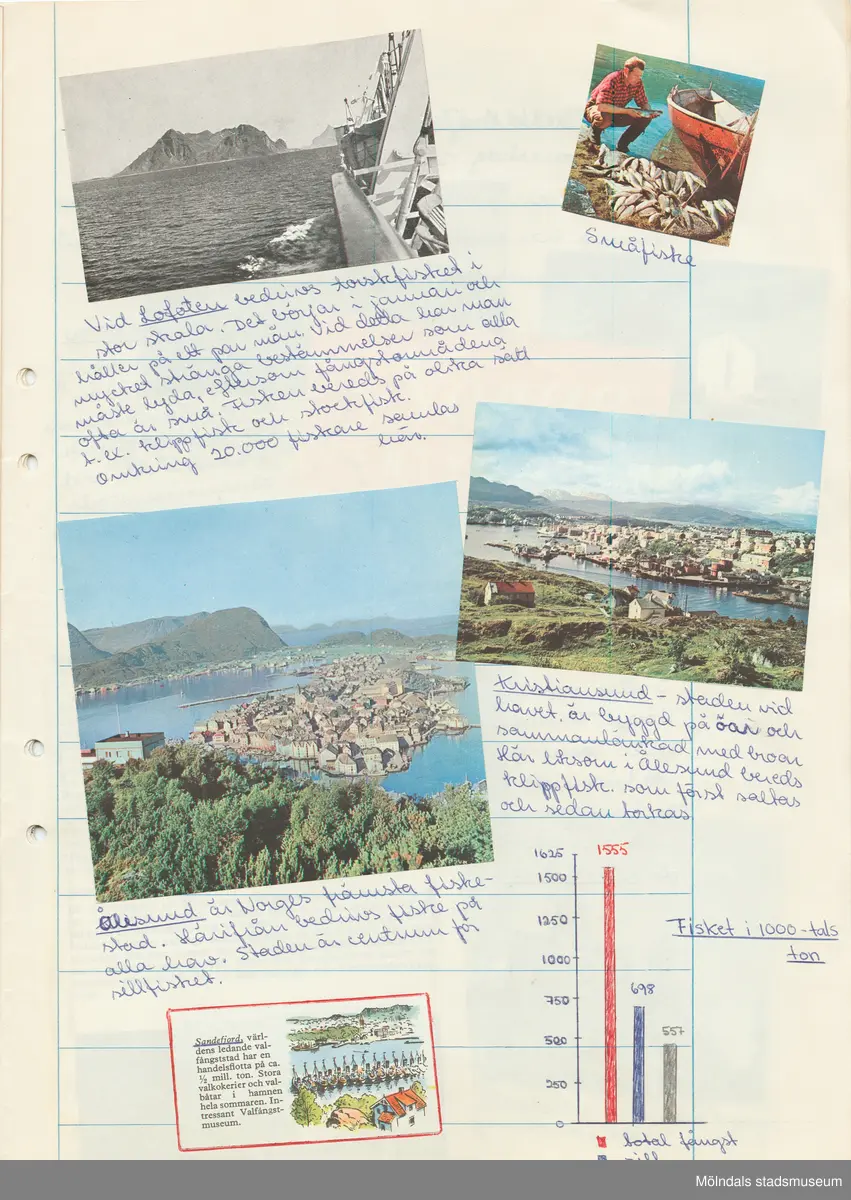 Småfiske
Vid Lofoten bedrivs torskfisket i
stor skala. Det börjar i januari och
håller på ett par mån. Vid detta har man
mycket stränga bestämmelser som alla
måste lyda, eftersom fångstområdena
ofta är små. Fisken bereds på olika sätt
t.ex. klippfisk och stockfisk.
Omkring 20.000 fiskare samlas
här.
Kristiansund - staden vid
havet är byggd på öar och
sammanlänkad med broar
Här liksom i Ålesund bereds
klippfisk. som först saltas
och sedan torkas
Ålesund är Norges främsta fiske-
stad. Härifrån bedrivs fiske på
alla hav. Staden är centrum för
sillfisket.
Sandefjord, värl-
dens ledande val-
fångststad har en
handelsflotta på ca.
½ mill. ton. Stora
valkokerier och val-
båtar i hamnen
hela sommaren. In-
tressant Valfångst-
museum.
Fisket i 1000-tals
ton
1625
1500
1250
1000
750
500
250
0
1555
698
557
total fångst
sill
Mölndals stadsmuseum